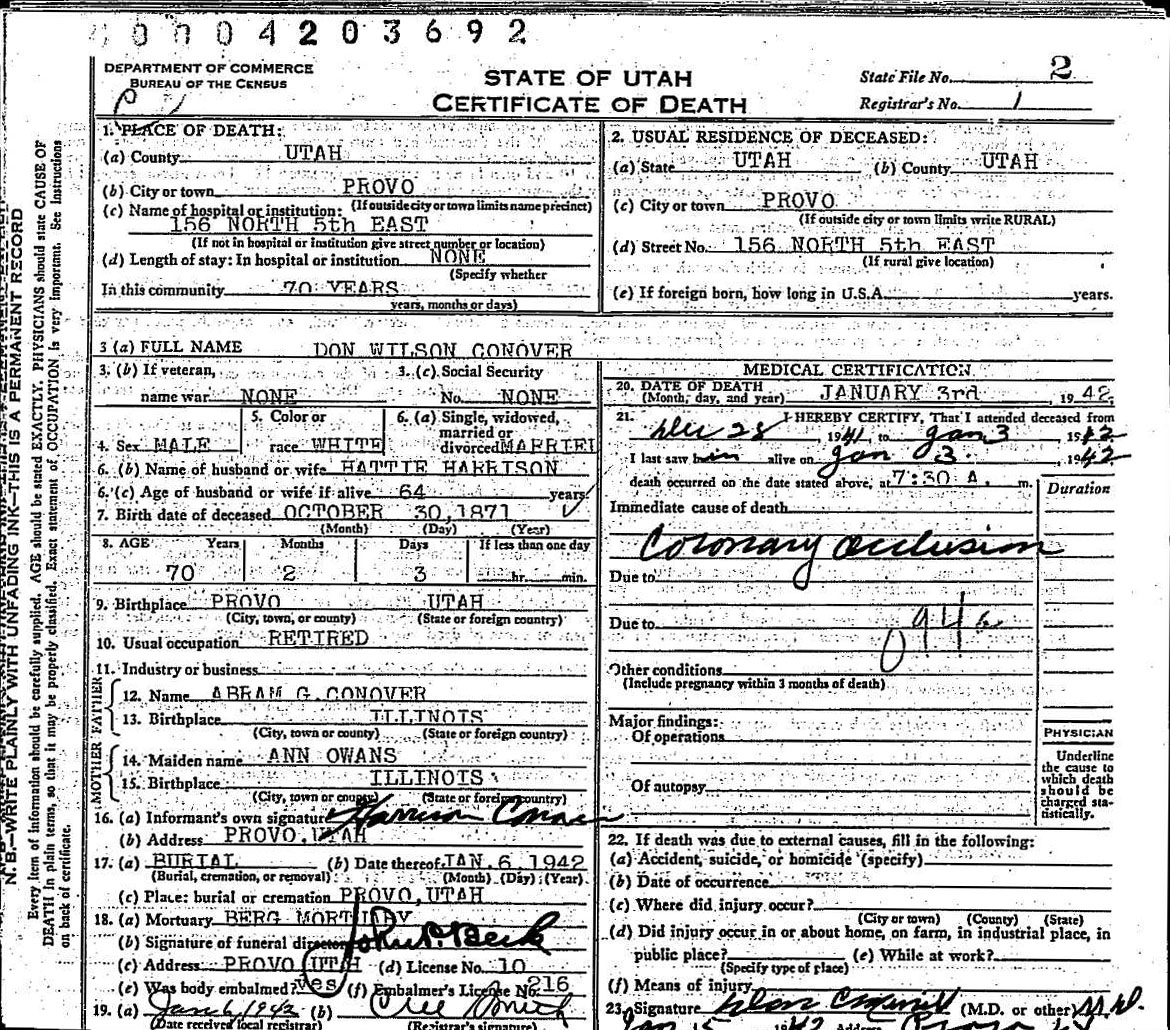 0004203692
DEPARTMENT OF COMMERCE
BUREAU OF THE CENSUS
STATE OF UTAH
CERTIFICATE OF DEATH
State File No. 2
Registrar's No. 1
1. PLACE OF DEATH:
(a) County UTAH
(b) City or town PROVO
(If outside city or town limits name precinct)
(c) Name of hospital or institution:
156 NORTH 5th EAST
(If not in hospital or institution give street number or location)
(d) Length of stay: In hospital or institution NONE
(Specify whether
In this community 70 YEARS
years, months or days)
2. USUAL RESIDENCE OF DECEASED:
(a) State UTAH (b) County UTAH
(c) City or town PROVO
(If outside city or town limits write RURAL)
(d) Street No. 156 NORTH 5th EAST
(If rural give location)
(e) If foreign born, how long in U.S.A. years.
3 (a) FULL NAME DON WILSON CONOVER
3. (b) If veteran, 3. (c) Social Security
name war NONE No. NONE
5. Color or 6. (a) Single, widowed,
married or
4. Sex MALE race WHITE divorced MARRIED
6. (b) Name of husband or wife HATTIE HARRISON
6. (c) Age of husband or wife if alive 64 years
7. Birth date of deceased OCTOBER 30, 1871
(Month) (Day) (Year)
8. AGE Years Months Days If less than one day
70 2 3 hr. min.
9. Birthplace PROVO UTAH
(City, town, or county) (State or foreign country)
10. Usual occupation RETIRED
11. Industry or business
FATHER
12. Name ABRAM G. CONOVER
13. Birthplace ILLINOIS
(City, town or county) (State or foreign country)
MOTHER
14. Maiden name ANN OWANS
15. Birthplace ILLINOIS
(City, town or county) (State or foreign country)
16. (a) Informant's own signature Harrison Conover
(b) Address PROVO, UTAH
17. (a) BURIAL (b) Date thereof JAN. 6, 1942
(Burial, cremation, or removal) (Month) (Day) (Year)
(c) Place: burial or cremation PROVO, UTAH
18. (a) Mortuary BERG MORTUARY
(b) Signature of funeral director
(c) Address PROVO UTAH (d) License No. 10
(e) Was body embalmed? Yes (f) Embalmer's License No. 216
19. (a) Jan 6, 1942 (b)
(Date received local registrar) (Registrar's signature)
MEDICAL CERTIFICATION
20. DATE OF DEATH
(Month, day, and year) JANUARY 3rd, 1942.
21. I HEREBY CERTIFY, That I attended deceased from
Dec 28 1941, to Jan 3 1942
I last saw him alive on Jan 3. 1942
death occurred on the date stated above, at 7:30 A. m.
Duration
Immediate cause of death
Coronary Occlusion
Due to
Due to
Other conditions
(Include pregnancy within 3 months of death)
Major findings:
Of operations
Of autopsy
PHYSICIAN
Underline
the cause to
which death
should be
charged sta-
tistically.
22. If death was due to external causes, fill in the following:
(a) Accident, suicide, or homicide (specify)
(b) Date of occurrence
(c) Where did injury occur?
(City or town) (County) (State)
(d) Did injury occur in or about home, on farm, in industrial place, in
public place? (e) While at work?
(Specify type of place)
(f) Means of injury
23. Signature (M.D. or other) M.D.
Jan 5 1942 Address Provo
N. B.—WRITE PLAINLY WITH UNFADING INK—THIS IS A PERMANENT RECORD
Every item of information should be carefully supplied. AGE should be stated EXACTLY. PHYSICIANS should state CAUSE OF
DEATH in plain terms, so that it may be properly classified. Exact statement of OCCUPATION is very important. See Instructions
on back of certificate.